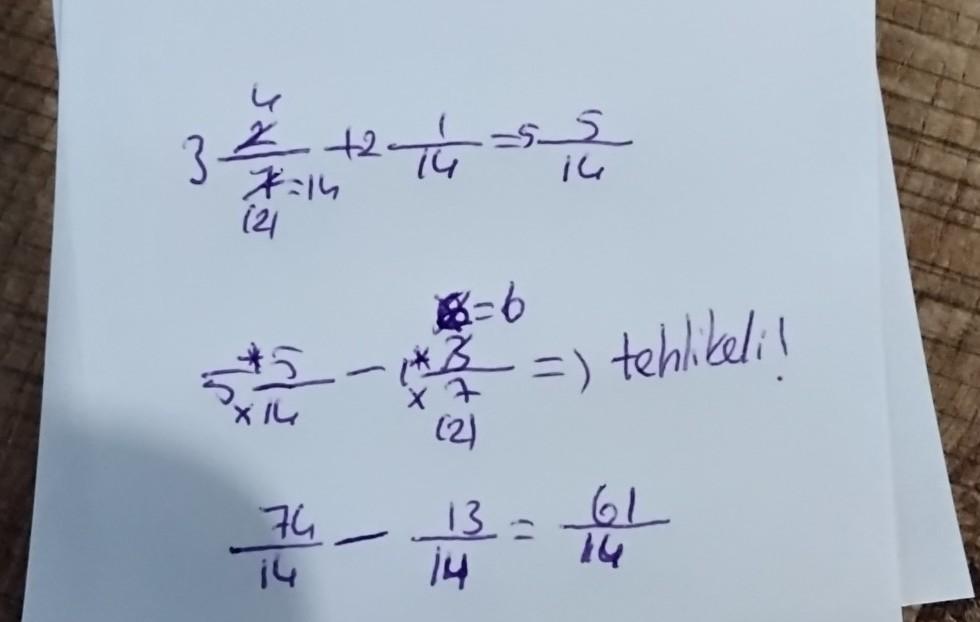 4
3 2/7 = 14 + 2 1/14 = 5 5/14
(2)
= 6
5 * 5/x 14 - 1 * 3/x 7 => tehlikeli!
(2)
74/14 - 13/14 = 61/14